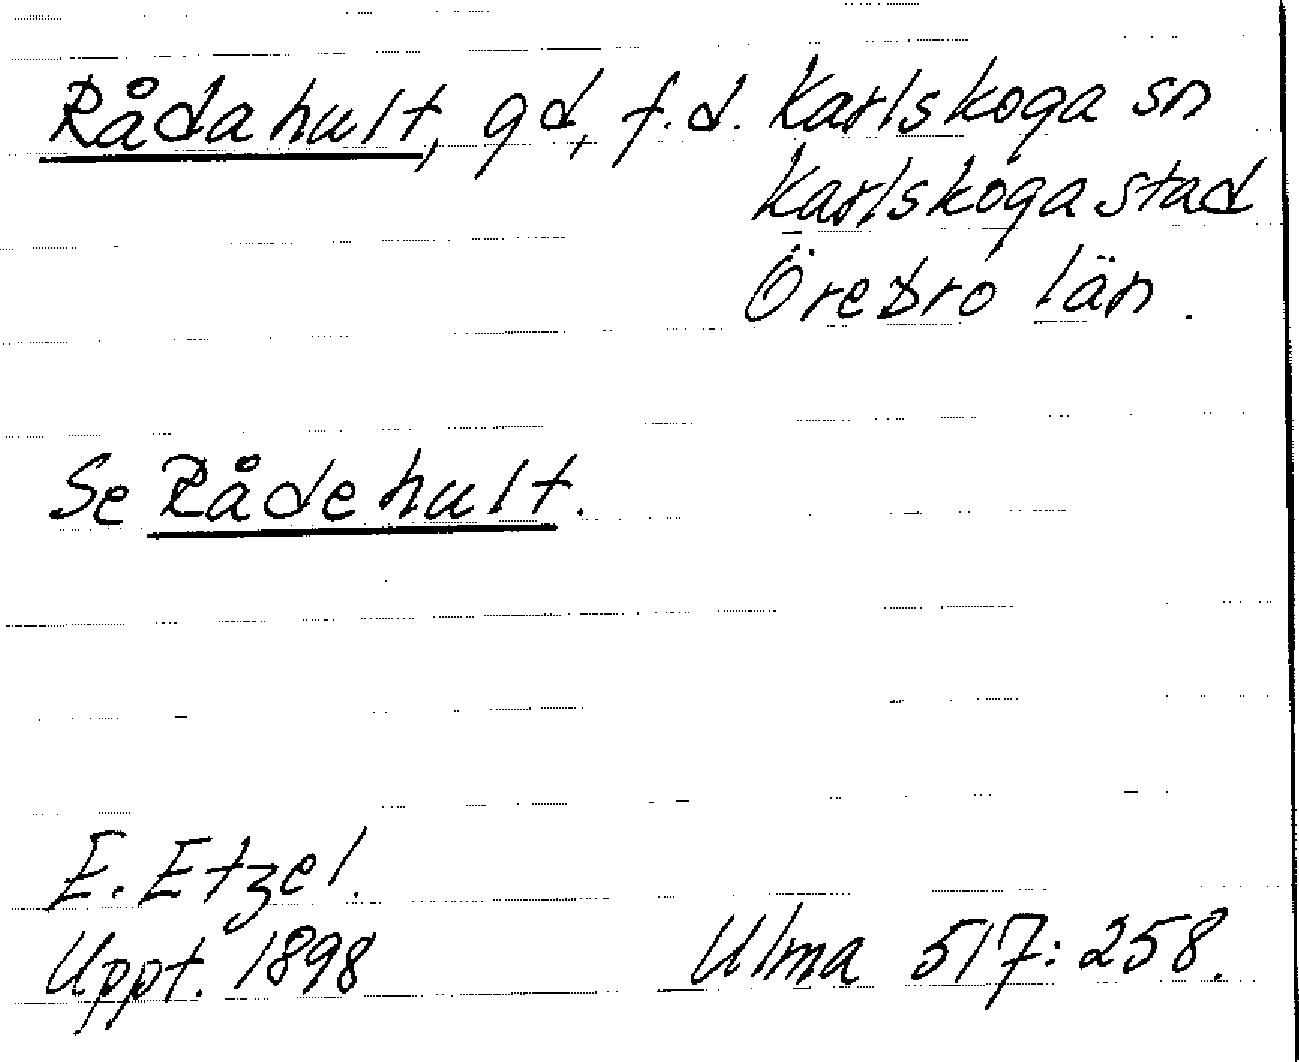 Rådahult, gd, f.d. Karlskoga sn
Karlskoga stad
Örebro län.
Se Rådehult.
E. Etzel.
Uppt. 1898
Ulma 517:258.